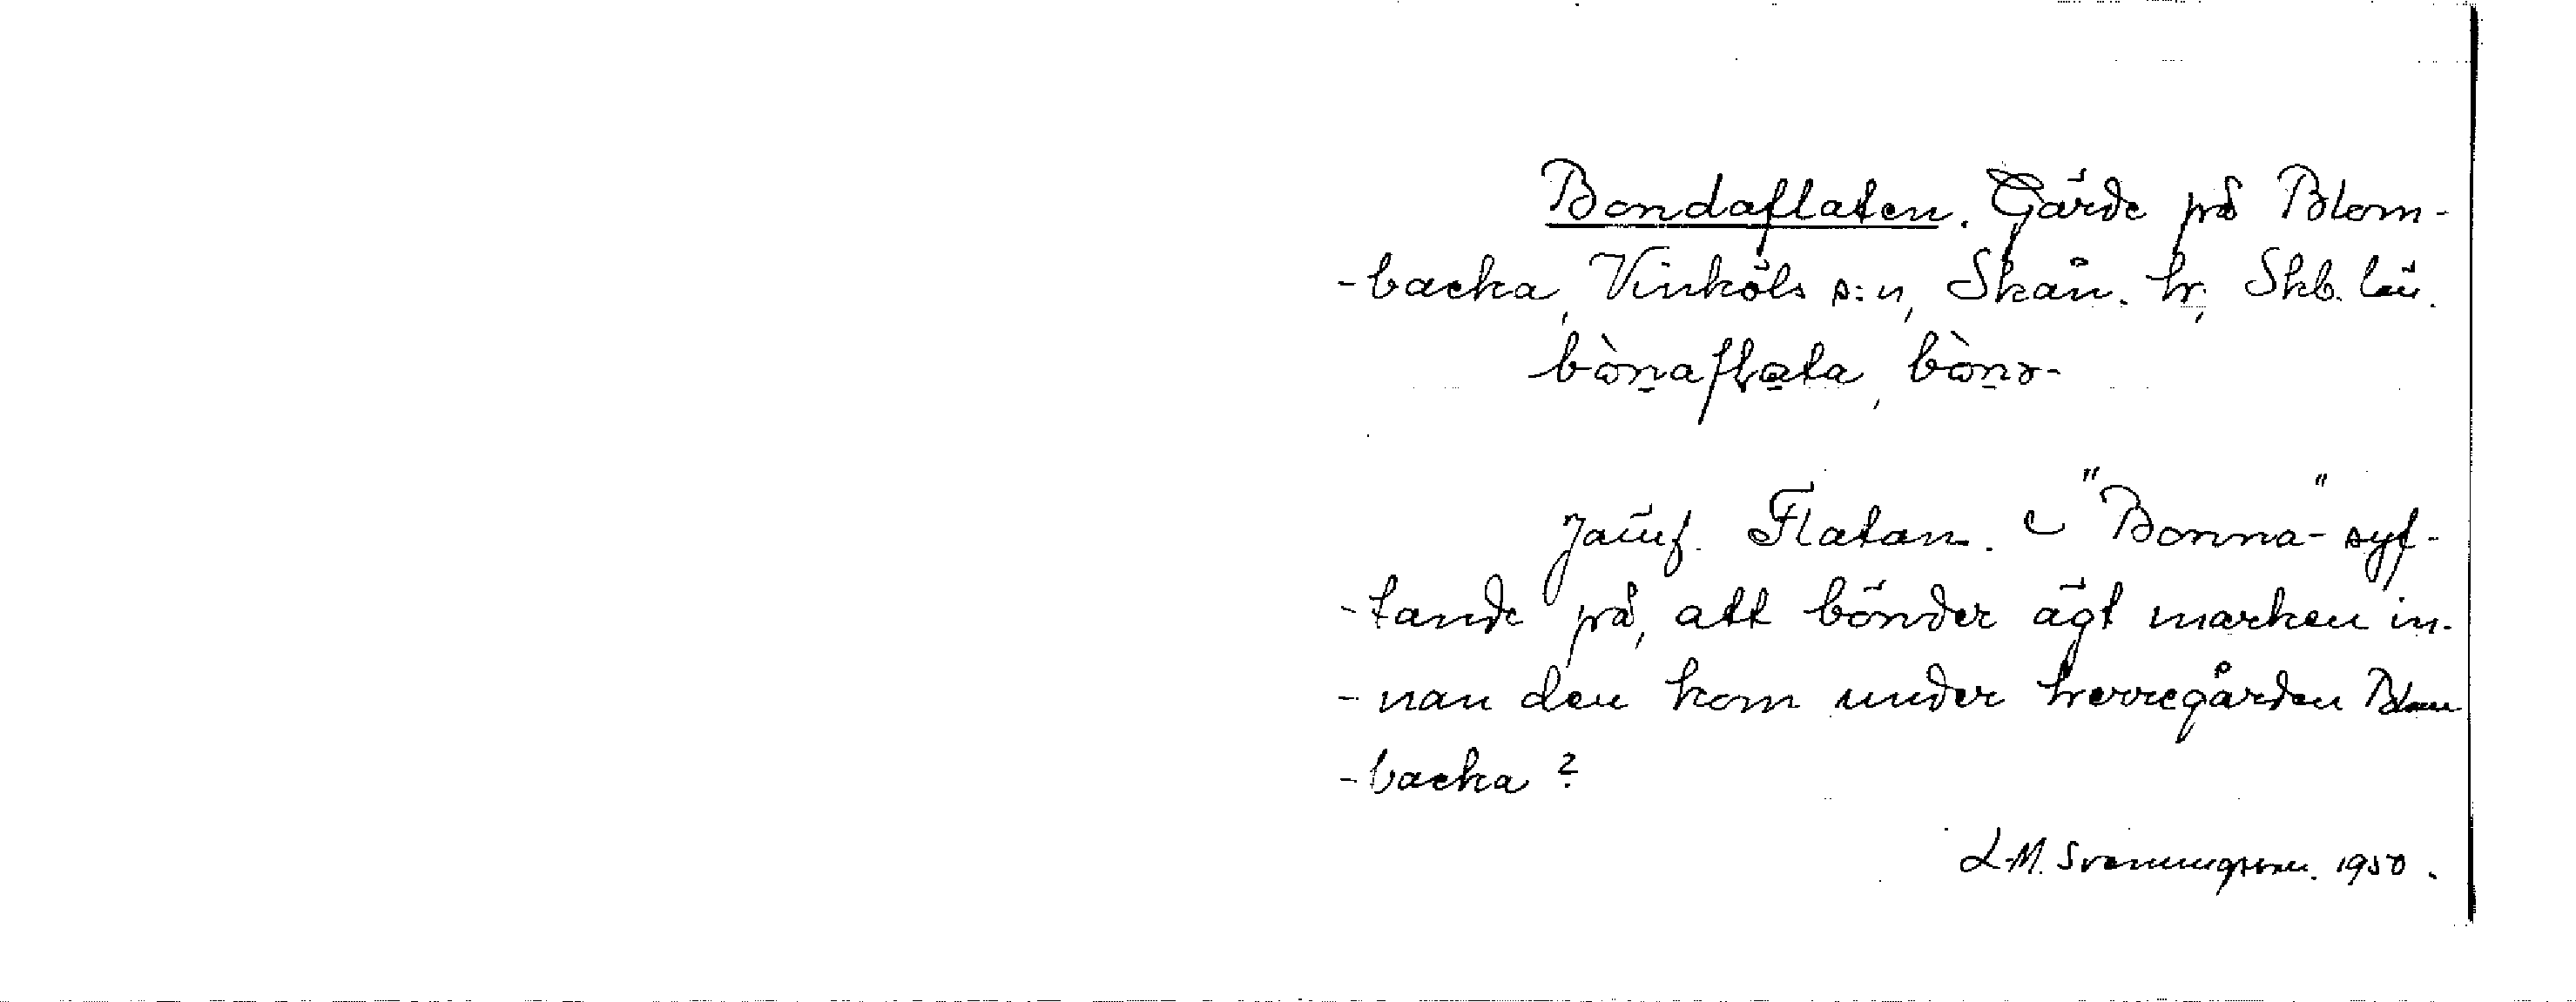 Bondaflaten. Gärde på Blom-
-backa, Vinköls s:n, Skån. hr, Skb. län.
bòn̠afla̠ta, bòn̠ə-
Jämf. Flatan. "Bonna"- syf-
-tande på, att bönder ägt marken in-
-nan den kom under herregården Blom
-backa?
L.M. Svenungsson. 1950.